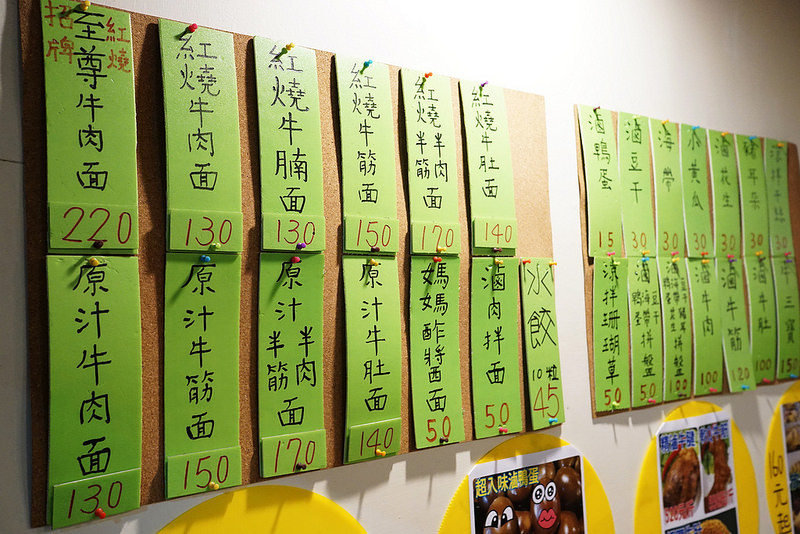 招牌
紅燒
至尊牛肉面
220
紅燒牛肉面
130
紅燒牛腩面
130
紅燒牛筋面
150
紅燒半筋半肉面
170
紅燒牛肚面
140
原汁牛肉面
130
原汁牛筋面
150
原汁半筋半肉面
170
原汁牛肚面
140
媽媽酢將面
50
滷肉拌面
50
水餃
10粒
45
滷鴨蛋
15
滷豆干
30
滷海帶
30
黃瓜
30
滷花生
30
豬耳朵
30
涼拌干絲
30
涼拌珊瑚草
50
50
100
滷牛肉
100
滷牛筋
120
滷牛肚
100
三寶
150
超入味滷鴨蛋
160元起